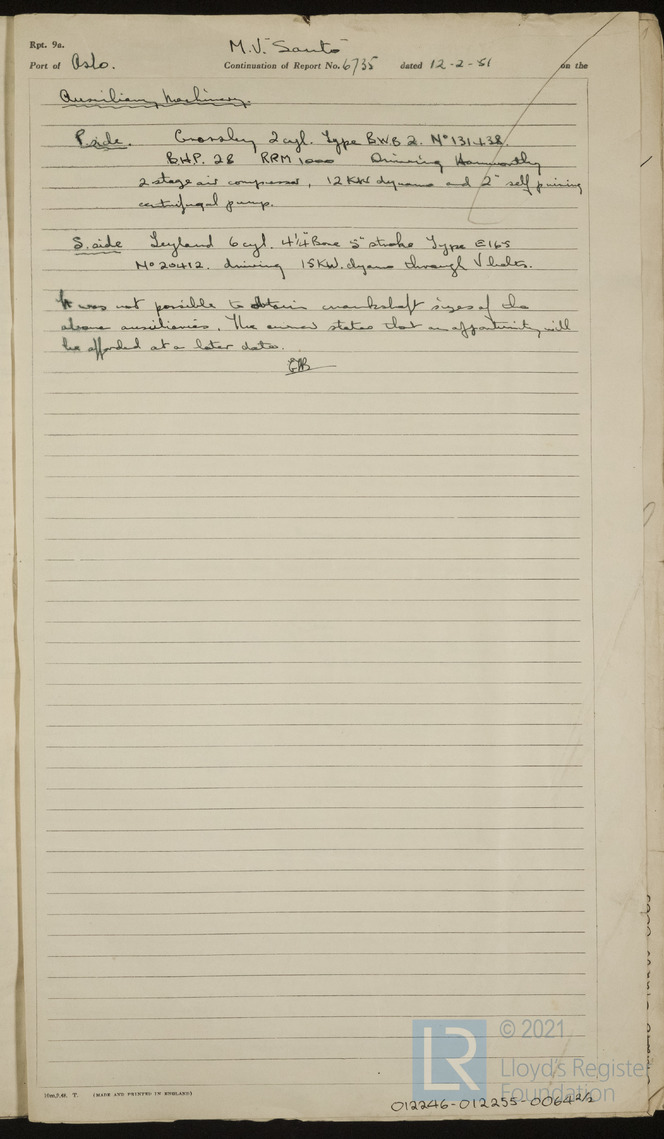 Rpt. 9a.
M.V. "Santo"
Port of Oslo. Continuation of Report No. 6735 dated 12-2-51 on the
Auxiliary Machinery.
P. side. Crossley 2 cyl. Type BWB 2. No 131438.
BHP. 28 RPM 1000 Driving Hamworthy
2 stage air compressor, 12 KW dynamo and 2" self priming
centrifugal pump.
S. side Leyland 6 cyl. 4¼" Bore 5" stroke Type E165
No 20412. driving 15KW. dynamo through V belts.
It was not possible to obtain crankshaft sizes of the
above auxiliaries. The owner states that an opportunity will
be afforded at a later date.
© 2021
LR
Lloyd's Register
Foundation
(MADE AND PRINTED IN ENGLAND)
012246-012255-0064 2/2